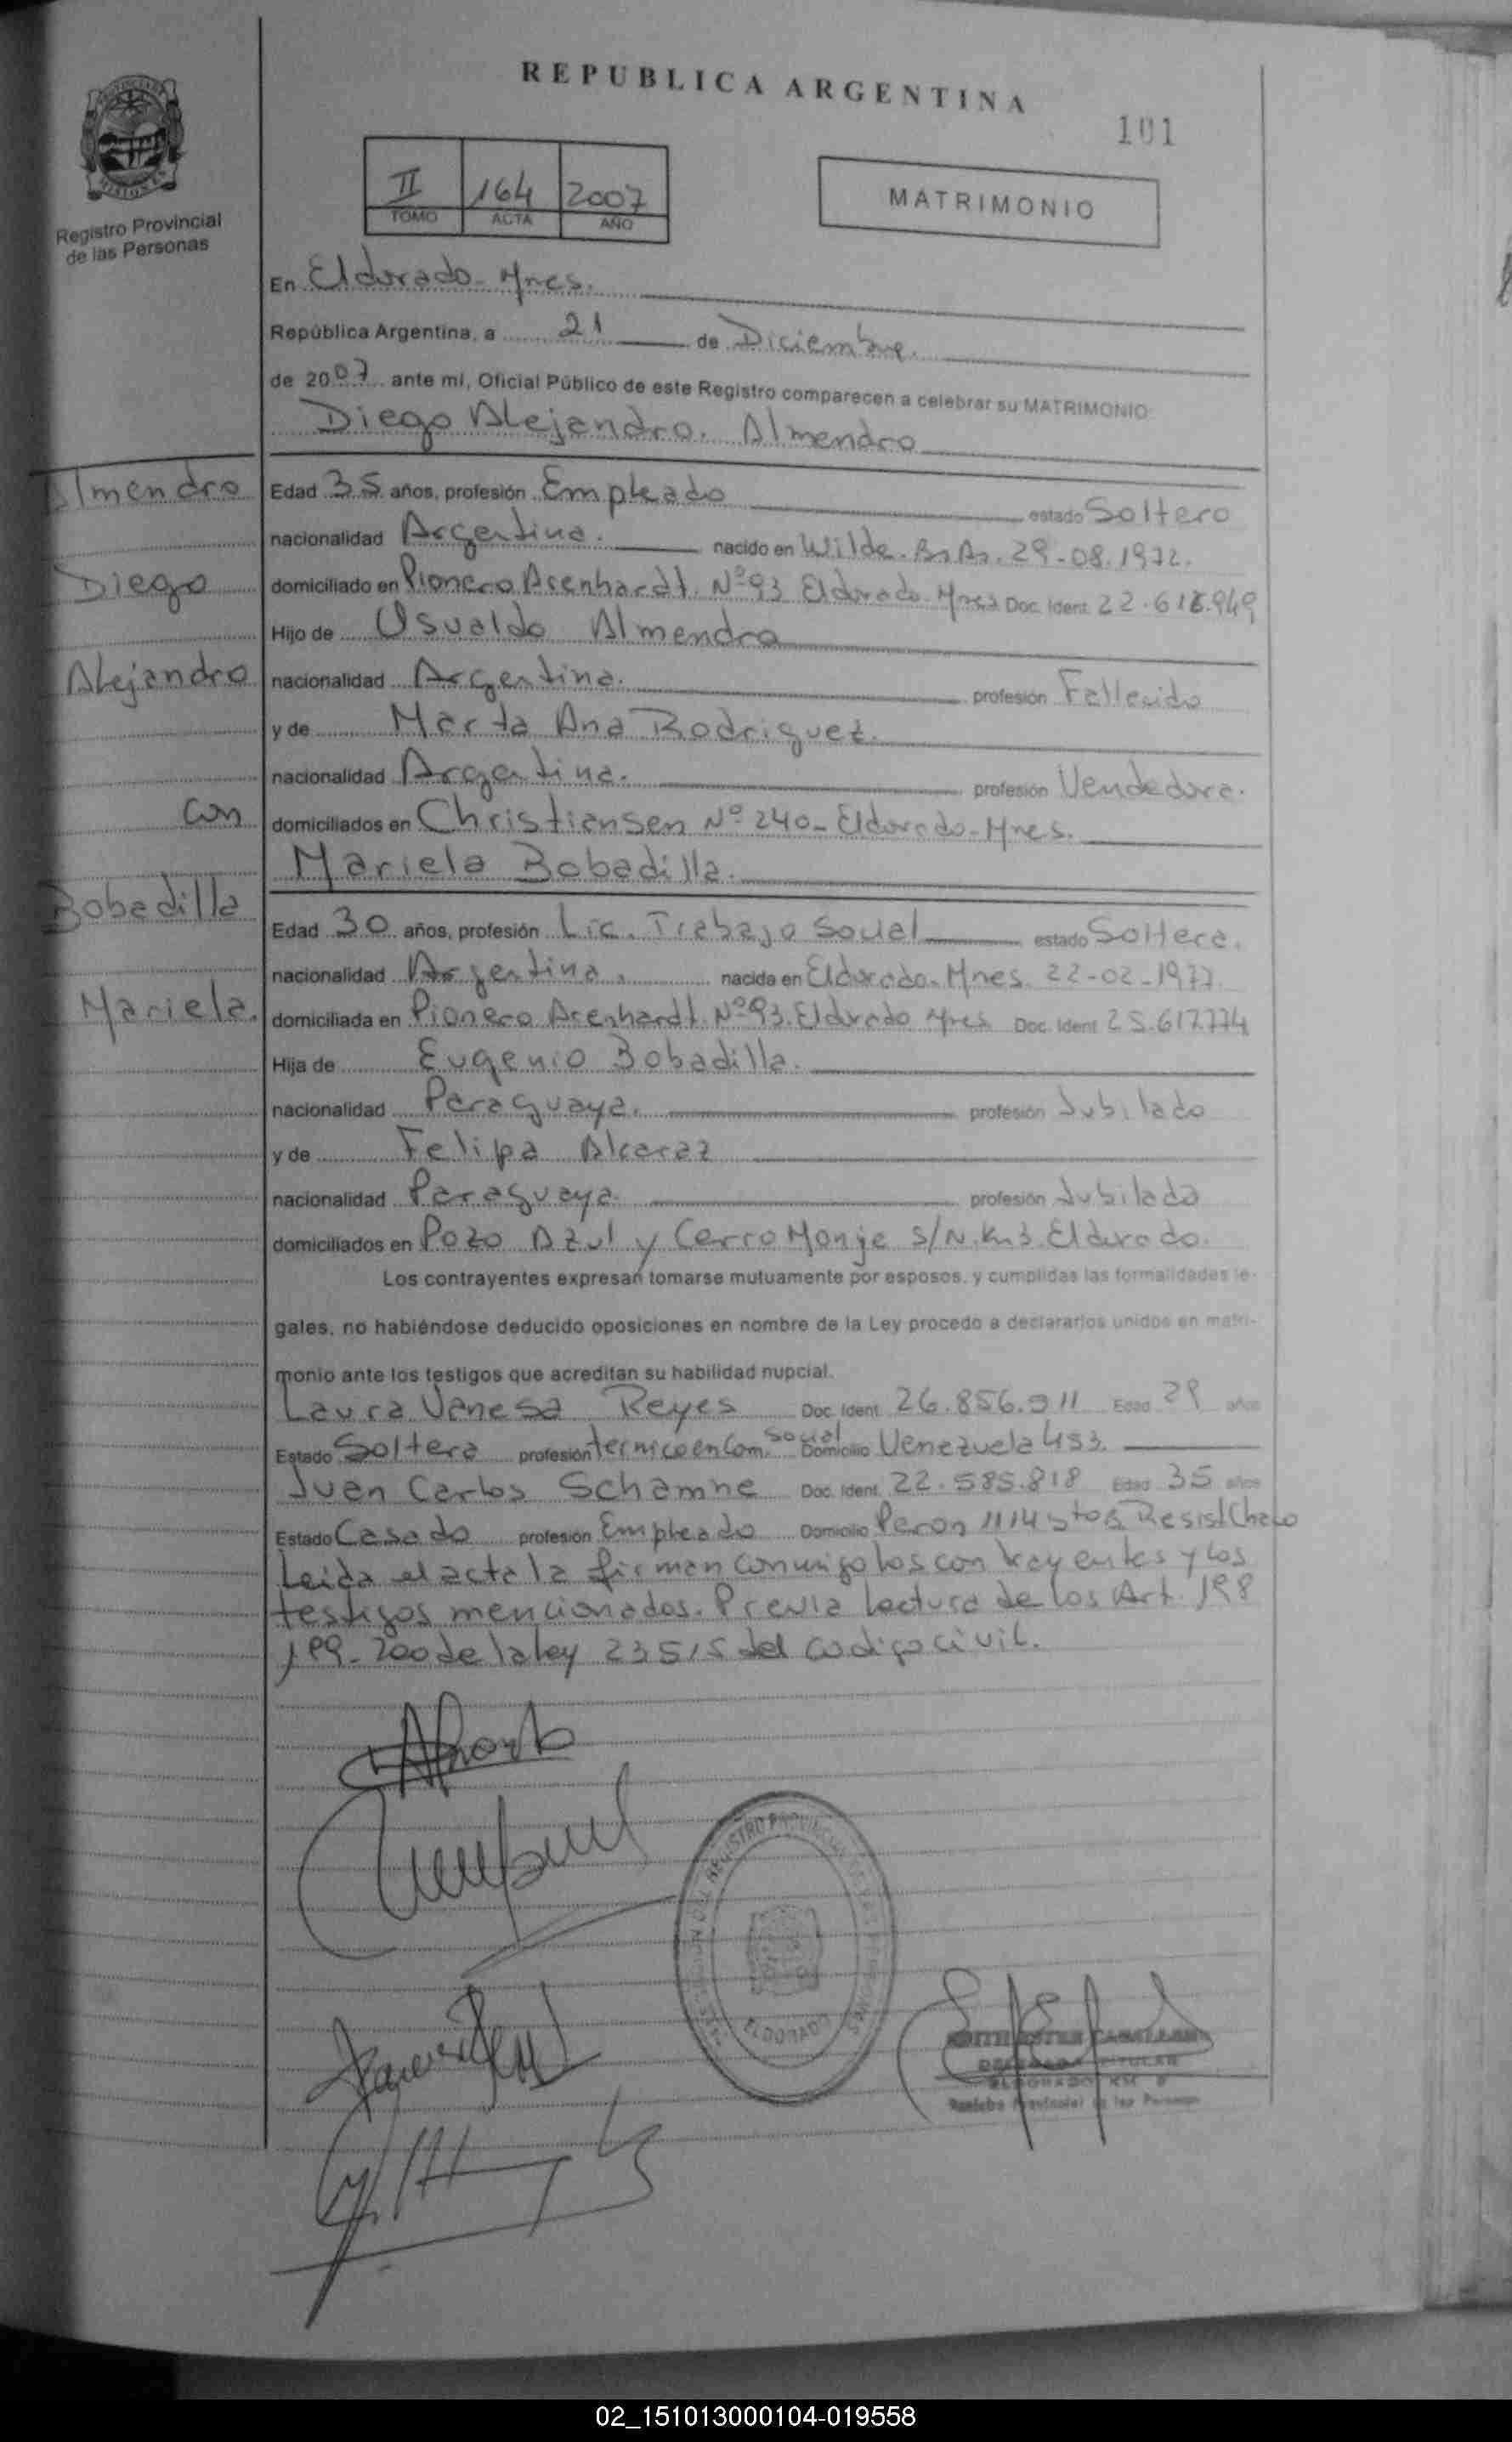 REPUBLICA ARGENTINA
101
PROVINCIA
MISIONES
Registro Provincial
de las Personas
II 164 2007
TOMO ACTA AÑO
MATRIMONIO
En Eldorado - Mnes.
República Argentina, a 21 de Diciembre.
de 2007 ante mí, Oficial Público de este Registro comparecen a celebrar su MATRIMONIO
Diego Alejandro. Almendro
Almendro
Diego
Alejandro
con
Bobadilla
Mariela.
Edad 35 años, profesión Empleado estado Soltero
nacionalidad Argentina. nacido en Wilde. Bs As. 29-08.1972.
domiciliado en Pionero Arenhardt. Nº 93 Eldorado Mnes Doc. Ident. 22.618.949
Hijo de Osvaldo Almendro
nacionalidad Argentina. profesión Fallecido
y de Marta Ana Rodriguez.
nacionalidad Argentina. profesión Vendedora.
domiciliados en Christiansen Nº 240 - Eldorado - Mnes.
Mariela Bobadilla.
Edad 30 años, profesión Lic. Trabajo Social estado Soltera.
nacionalidad Argentina. nacida en Eldorado - Mnes. 22-02-1977.
domiciliada en Pionero Arenhardt. Nº 93. Eldorado Mnes Doc. Ident. 25.617.774
Hija de Eugenio Bobadilla.
nacionalidad Paraguaya. profesión Jubilado
y de Felipa Alcaraz
nacionalidad Paraguaya. profesión Jubilada
domiciliados en Pozo Azul y Cerro Monje S/N. Km 3. Eldorado.
Los contrayentes expresan tomarse mutuamente por esposos, y cumplidas las formalidades le-
gales, no habiéndose deducido oposiciones en nombre de la Ley procedo a declararlos unidos en matri-
monio ante los testigos que acreditan su habilidad nupcial.
Laura Vanesa Reyes Doc. Ident. 26.856.911 Edad 29 años
Estado Soltera profesión termico en Com. Social Domicilio Venezuela 453.
Juan Carlos Schamne Doc. Ident. 22.585.818 Edad 35 años
Estado Casado profesión Empleado Domicilio Peron 1114 Resist Chaco
Leida el acta la firman conmigo los contrayentes y los
testigos mencionados. Previa lectura de los Art. 198
199-200 de la ley 23515 del codigo civil.
REGISTRO PROVINCIAL DE LAS PERSONAS
ELDORADO
EDITH ESTER CABALLERO
DELEGADA TITULAR
ELDORADO KM 9
Registro Provincial de las Personas
02_151013000104-019558